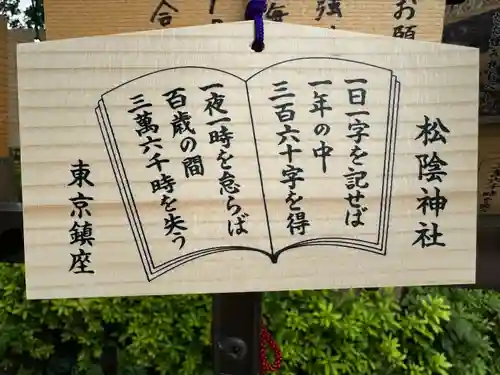 松陰神社
一日一字を記せば
一年の中
三百六十字を得
一夜一時を怠らば
百歳の間
三萬六千時を失う
東京鎮座